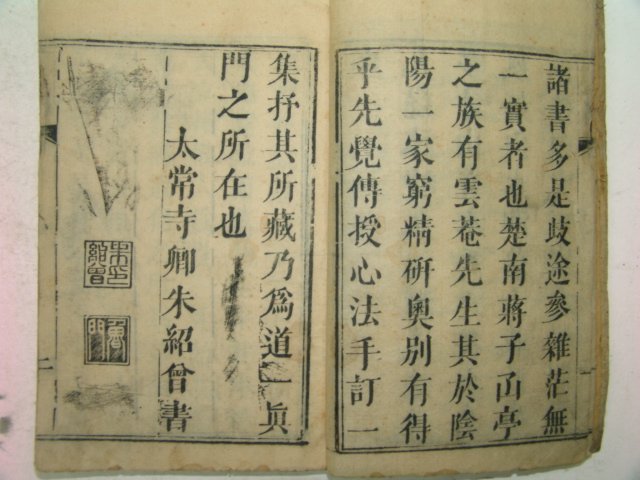 諸書多是歧途參雜茫無
一實者也楚南蔣子凾亭
之族有雲菴先生其於陰
陽一家窮精研奧別有得
乎先覺傳授心法手訂一
集抒其所藏乃為道一眞
門之所在也
太常寺卿朱紹曾書
朱印紹曾
二